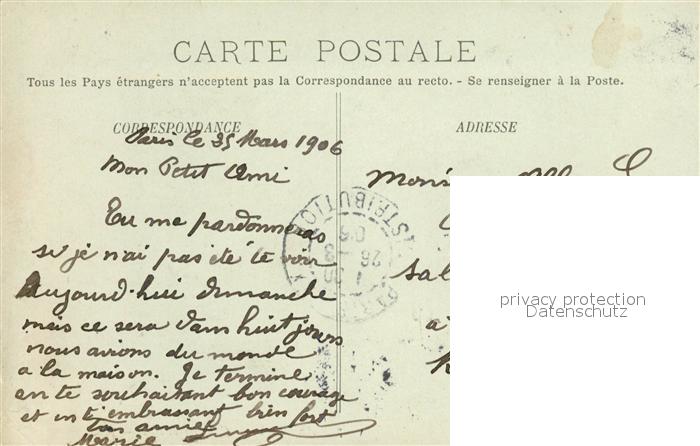 CARTE POSTALE
Tous les Pays étrangers n'acceptent pas la Correspondance au recto. - Se renseigner à la Poste.
CORRESPONDANCE
ADRESSE
Paris le 25 Mars 1906
Mon Petit Ami
Tu me pardonneras
si je n'ai pas été te voir
Aujourd-hui dimanche
mais ce sera dans huit jours
nous avions du monde
a la maison. Je termine
en te souhaitant bon courage
et en t'embrassant bien fort
ton amie
Marie
DISTRIBUTION
privacy protection
Datenschutz